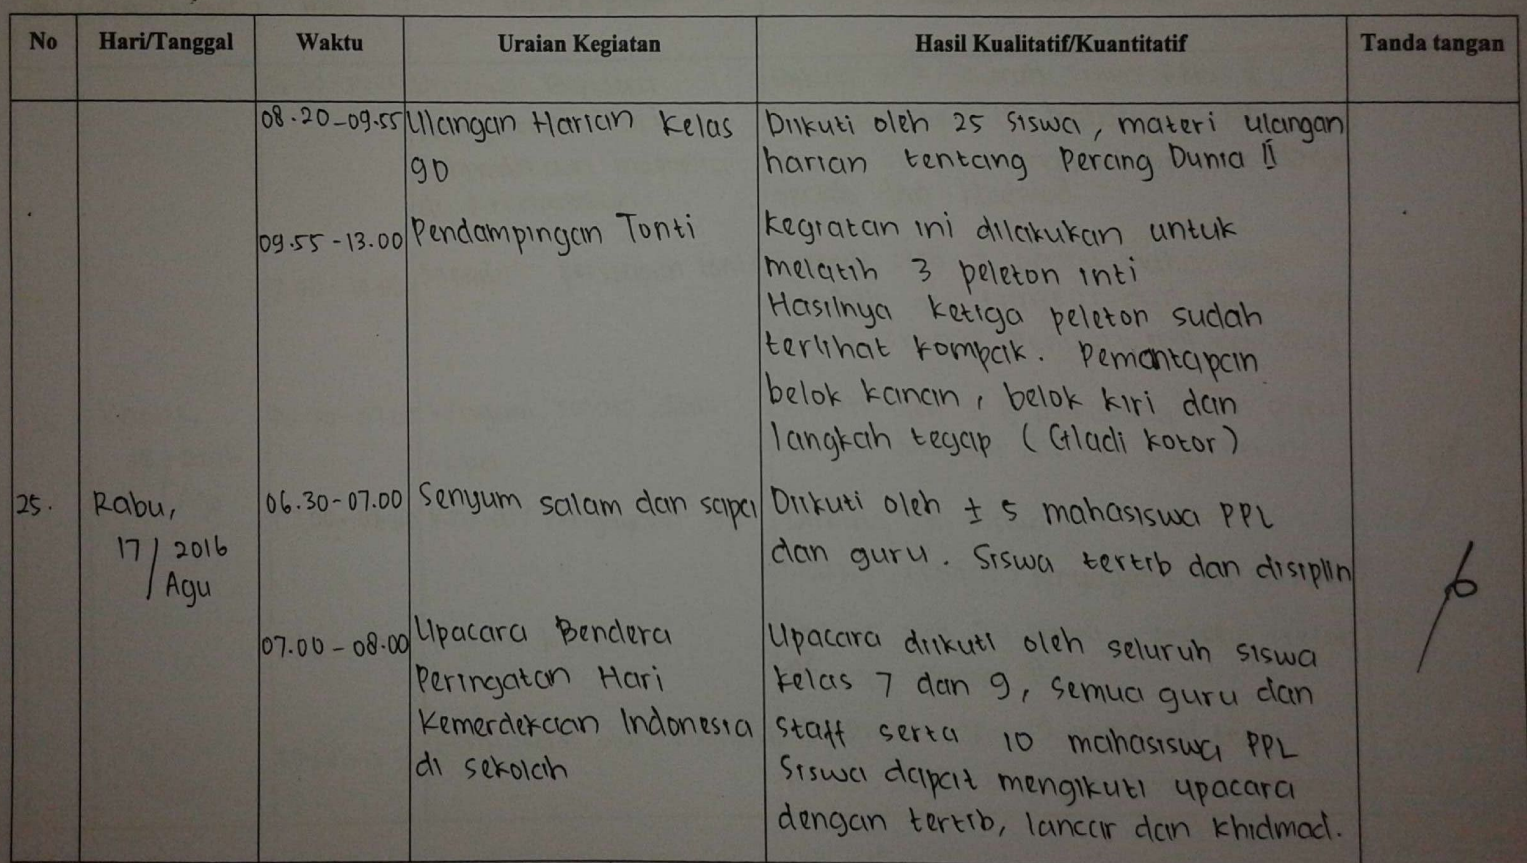 No Hari/Tanggal Waktu Uraian Kegiatan Hasil Kualitatif/Kuantitatif Tanda tangan
08.20-09.55 Ulangan Harian Kelas Diikuti oleh 25 siswa, materi ulangan
9D harian tentang Perang Dunia II
09.55-13.00 Pendampingan Tonti Kegiatan ini dilakukan untuk
melatih 3 peleton inti
Hasilnya ketiga peleton sudah
terlihat kompak. Pemantapan
belok kanan, belok kiri dan
langkah tegap (Gladi kotor)
25. Rabu, 06.30-07.00 Senyum salam dan sapa Diikuti oleh ± 5 mahasiswa PPL
17/ 2016 dan guru. Siswa tertib dan disiplin
Agu
07.00-08.00 Upacara Bendera Upacara diikuti oleh seluruh siswa
Peringatan Hari kelas 7 dan 9, semua guru dan
Kemerdekaan Indonesia staff serta 10 mahasiswa PPL
di sekolah Siswa dapat mengikuti upacara
dengan tertib, lancar dan khidmad.